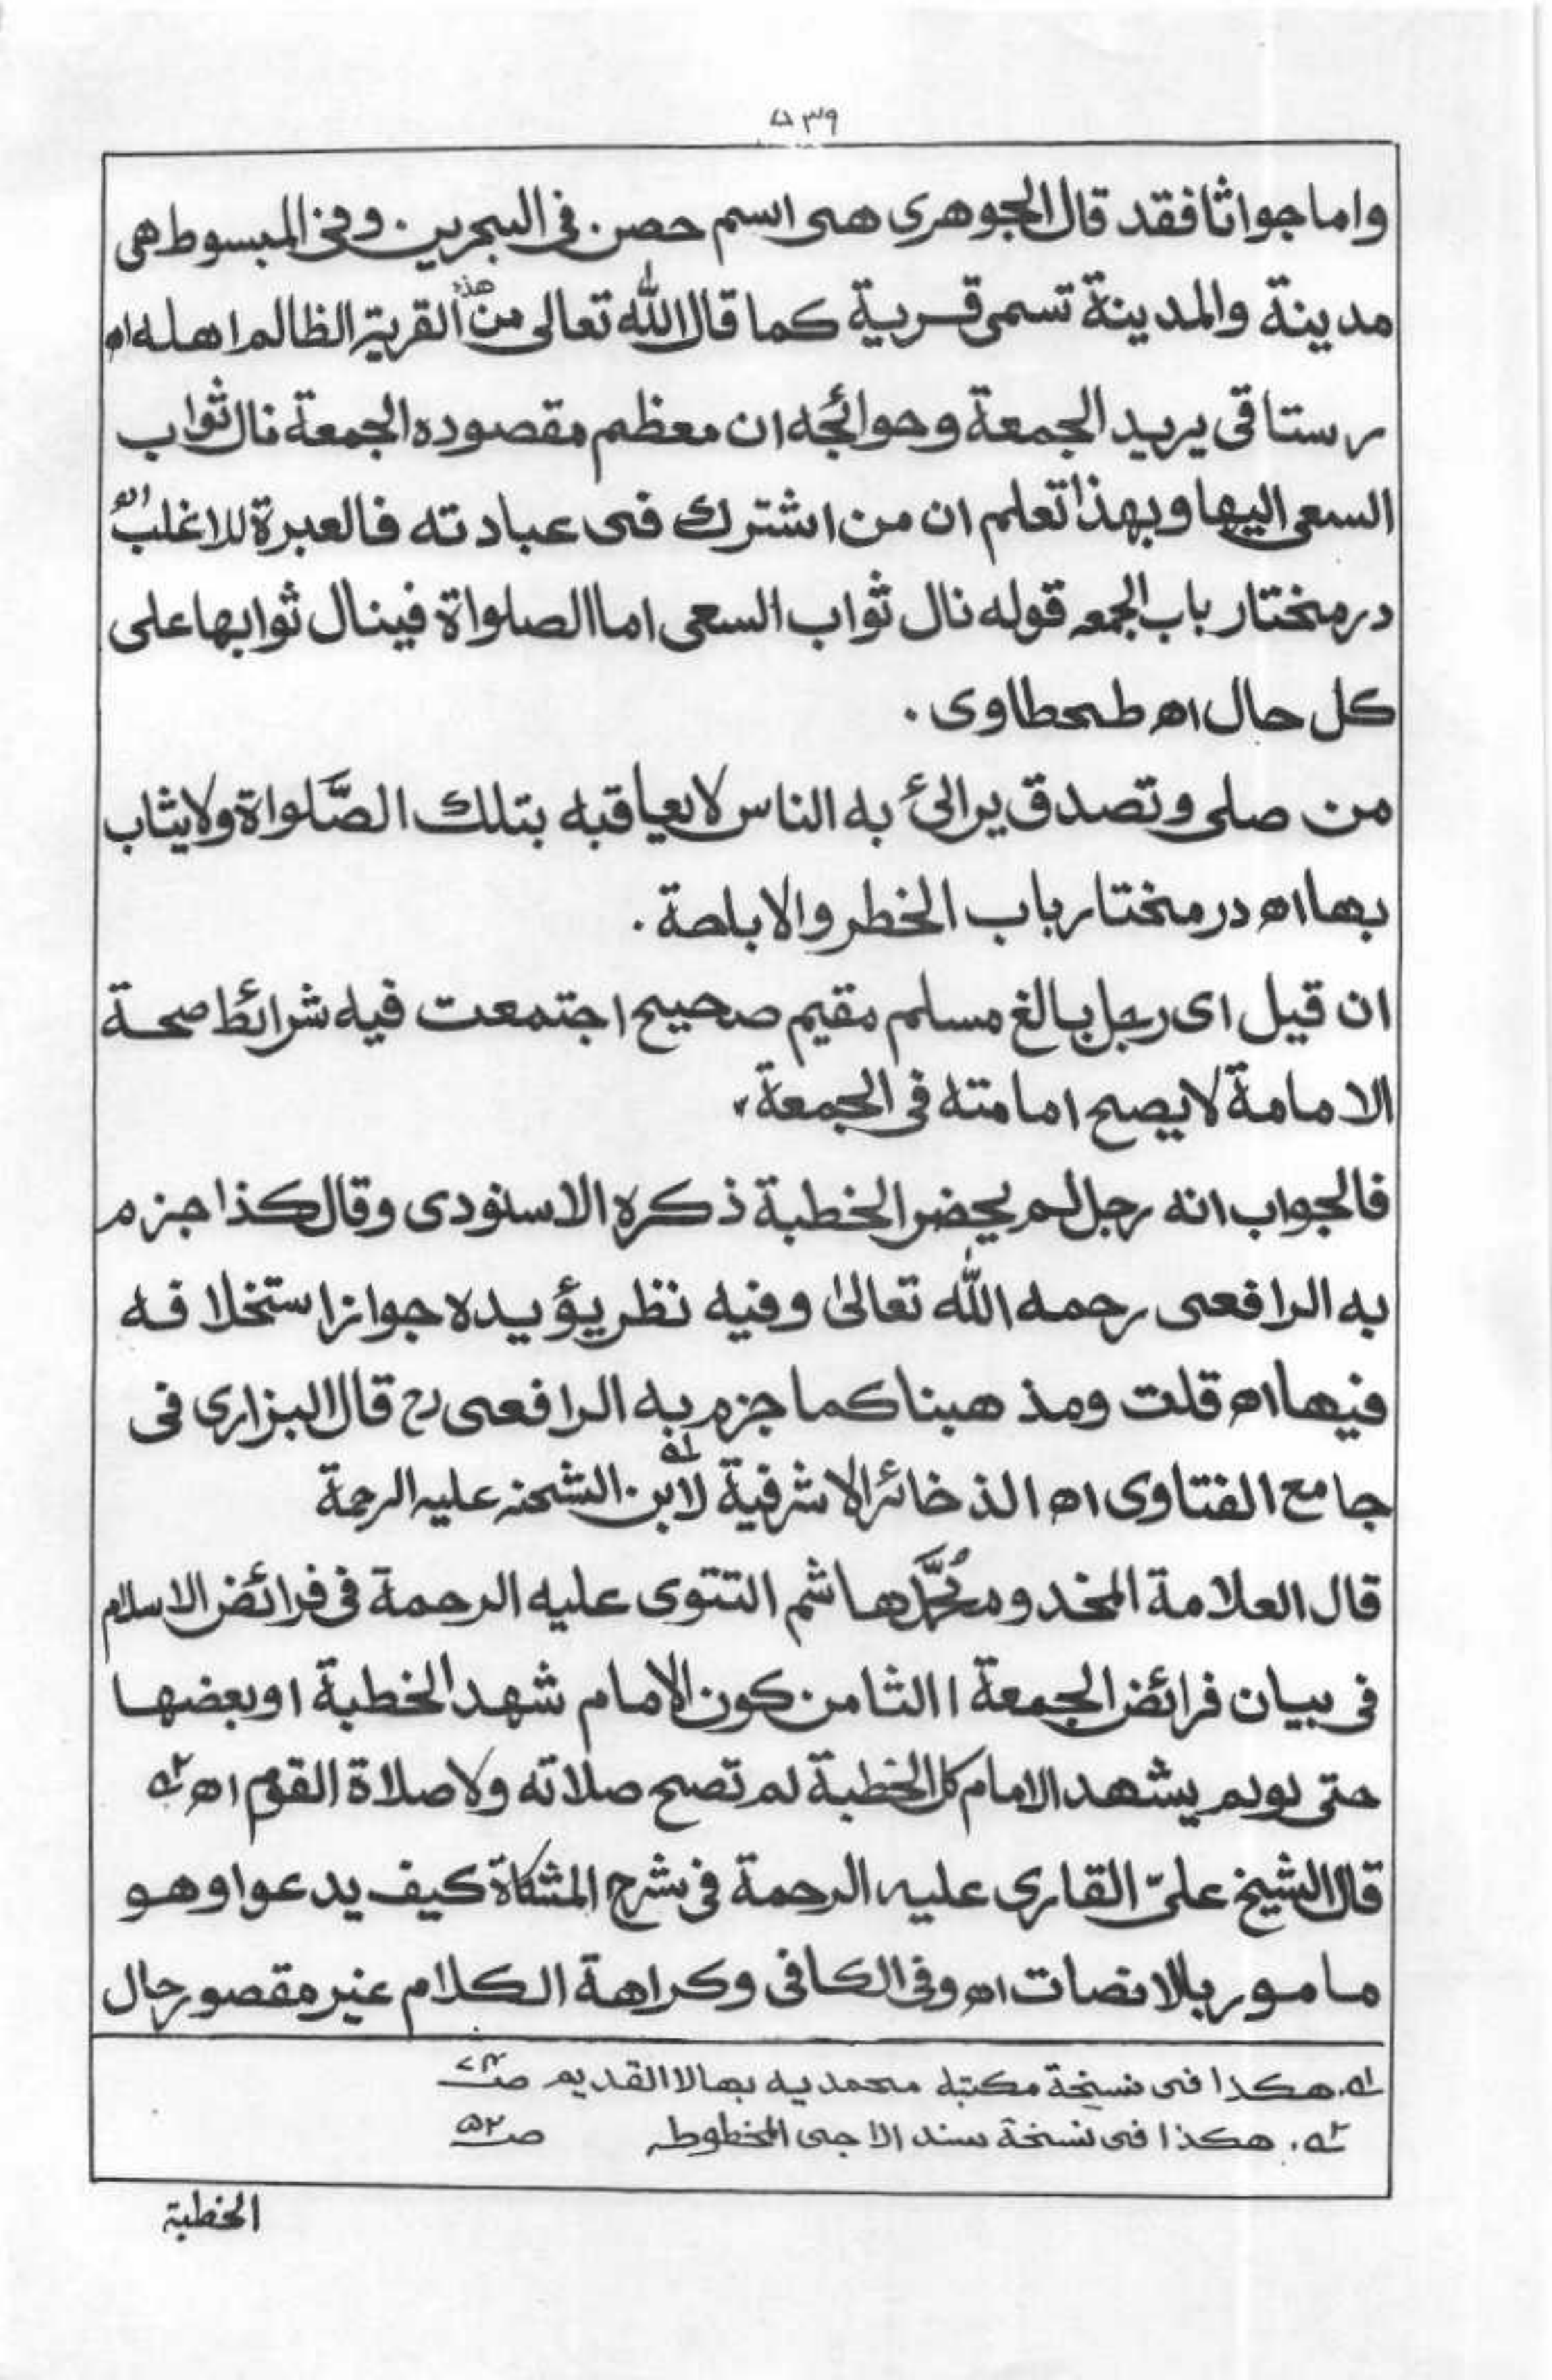 ۵۳۹
واما جواثا فقد قال الجوهرى هى اسم حصن فى البحرين وفى المبسوط هى
مدينة والمدينة تسمى قرية كما قال الله تعالى من هذه القرية الظالم اهلها اه
رستاقى يريد الجمعة وحوائجه ان معظم مقصوده الجمعة نال ثواب
السعى اليها وبهذا تعلم ان من اشترك فى عبادته فالعبرة للاغلب اه
درمختار باب الجمعه قوله نال ثواب السعى اما الصلواة فينال ثوابها على
كل حال اه طحطاوى .
من صلى وتصدق يرائ به الناس لا يعاقبه بتلك الصَّلواة ولا يثاب
بها اه درمختار باب الخطر والاباحة .
ان قيل اى رجل بالغ مسلم مقيم صحيح اجتمعت فيه شرائط صحة
الامامة لا يصح امامته فى الجمعة،
فالجواب انه رجل لم يحضر الخطبة ذكره الاسنودى وقال كذا جزم
به الرافعى رحمه الله تعالىٰ وفيه نظر يؤيده جواز استخلافه
فيها اه قلت ومذهبنا كما جزم به الرافعى رح قال البزارى فى
جامع الفتاوى اه الذخائر الاشرفية لابن الشحنه عليه الرحمة
قال العلامة المخدوم مُحمَّد هاشم التتوى عليه الرحمة فى فرائض الاسلام
فى بيان فرائض الجمعة ا الثامن كون الامام شهد الخطبة او بعضها
حتى لو لم يشهد الامام كل الخطبة لم تصح صلاته ولا صلاة القوم اه ٢ه
قال الشيخ علىّ القارى عليه الرحمة فى شرح المشكاة كيف يدعوا وهو
مامور بالانصات اه وفى الكافى وكراهة الكلام غير مقصور حال
١ه. هكذا فى نسخة مكتبه محمديه بهالا القديم
٢ه. هكذا فى نسخة سند الاجى المخطوطه ص ۵۲
الخطبة